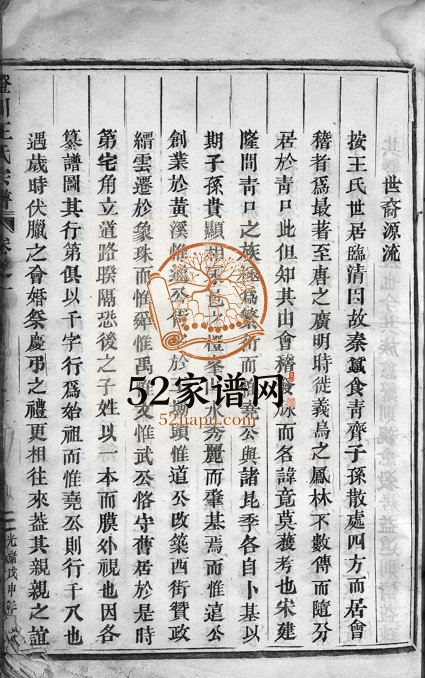 世裔源流
按王氏世居臨清因故秦蠶食青齊子孫散處四方而居會
稽者爲最著至唐之廣明時徙義烏之鳳林不數傳而隨分
居於青口此但知其山會稽 而各諱竟莫獲考也宋建
隆間青口之族 爲繁衍而 公與諸昆季各自卜基以
期子孫貴顯相 水秀麗而肇基焉而惟遠公
創業於黃溪惟 公 於 頭惟道公改築西街贊政
縉雲遷於象珠而惟舜惟禹 惟武公恪守舊居於是時
第宅角立道路暌隔恐後之子姓以一本而膜外視也因各
纂譜圖其行第俱以千字行爲始祖而惟堯公則行千八也
遇歲時伏臘之會婚祭慶弔之禮更相往來葢其親親之誼
王氏宗譜
光緒戊申
52家谱网
52jiapu.com